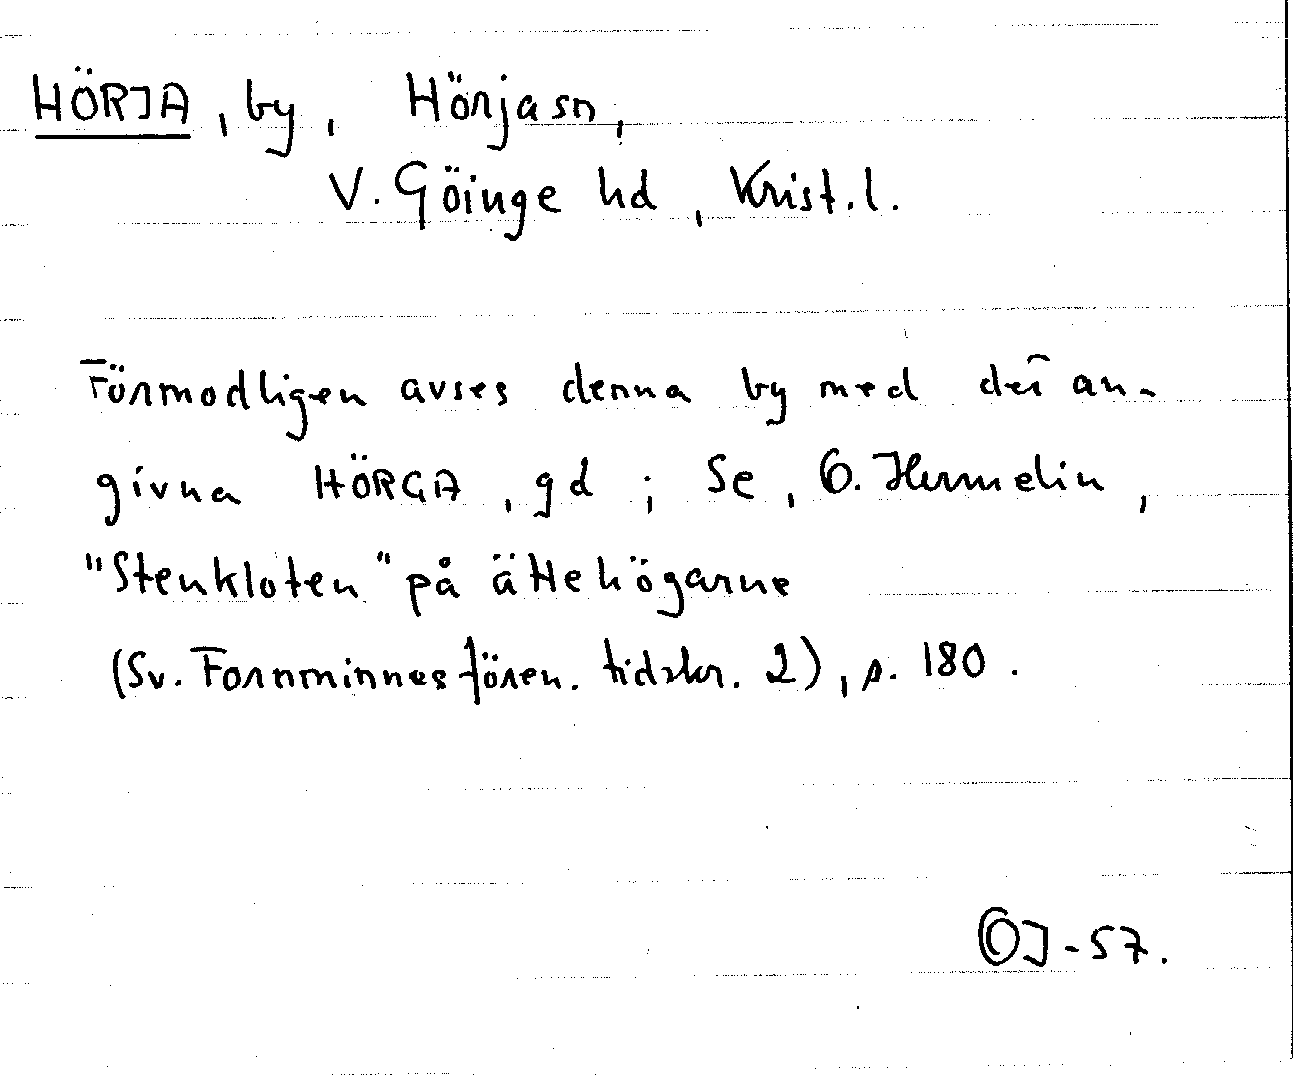 HÖRJA, by, Hörja sn,
V. Göinge hd, Krist. l.
Förmodligen avses denna by med dei an-
givna HÖRGA, gd; Se, O. Hermelin,
"Stenkloten" på ättehögarne
(Sv. Fornminnesfören. tidskr. 2), s. 180.
OJ-57.